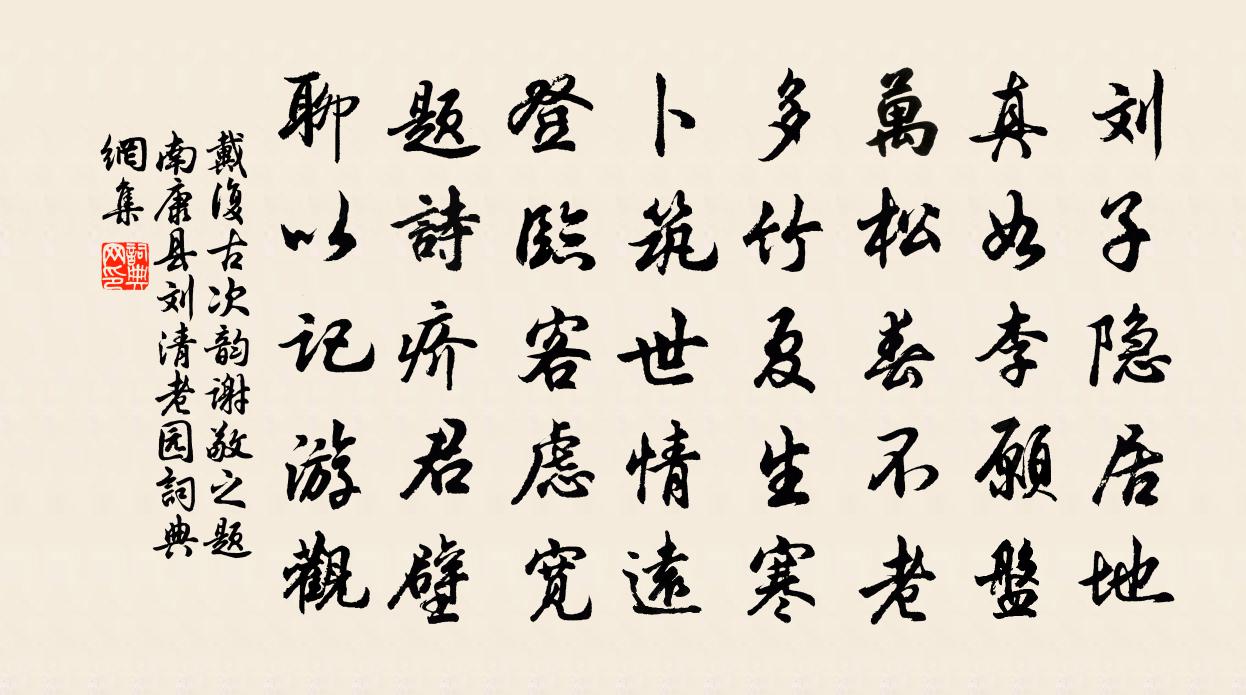 刘子隐居地
真如李願盤
萬松春不老
多竹夏生寒
卜筑世情遠
登臨客虑宽
题詩疥君壁
聊以记游觀
戴復古次韵谢敬之题
南康县刘清老园詞典
網集
詞典
网印